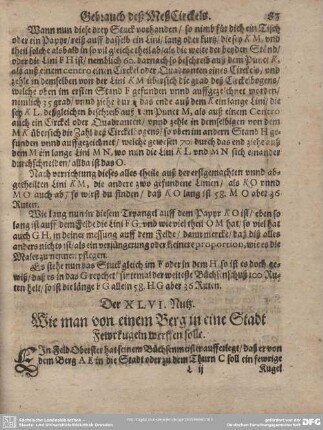 Gebrauch deß Meß Circkels. 83
Wann nun diese drey Stuck vorhanden / so nimb für dich ein Tisch
oder ein Papyr / reiß auff dasselb ein Lini / lang oder kurtz / diese sey K M, vnd
theil solche als bald in so vil gleiche theil ab / als die weite der beyden Ständ /
oder die Lini F H ist / nemblich 60. darnach so beschreib auß dem Punct K,
als auß einem centro ein Circkel oder Quadranten eines Circkels / vnd
zehle in demselben von der Lini K M übersich die grad deß Circkelbogens /
welche oben im ersten Stand F gefunden vnnd auffgezeichnet worden /
nemlich 35 grad / vnnd ziehe durch das ende auß dem K ein lange Lini / die
sey K L, deßgleichen beschreib auß dem Punct M, als auß einem Centro
auch ein Circkel oder Quadranten / vnd zehle in demselbigen von der
M K übersich die Zahl deß Circkelbogens / so oben im andern Stand H ge-
funden vnnd auffgezeichnet / welche gewesen 70: durch das end ziehe auß
dem M ein lange Lini M N, wo nun die Lini K L vnd M N sich einander
durchschneiden / allda ist das O.
Nach verrichtung dieses alles theile auß der erstgemachten vnnd ab-
getheilten Lini K M, die andere zwo gefundene Linien / als K O vnnd
M O auch ab / so wirst du finden / daß K O lang ist 58. M O aber 36
Ruten.
Wie lang nun in diesem Tryangel auff dem Papyr K O ist / eben so
lang ist auff dem Felde die Lini F G, vnd wie viel theil O M hat, so viel hat
auch G H, in deiner messung auff dem Felde / dann mercke / daß diß alles
anders nichts ist / als ein verjüngerung oder kleinere proportion, wie es die
Maler zu nennen pflegen.
Es stehe nun das Stuck gleich im F oder in dem H, so ist es doch ge-
wiß / daß es in das G reychet / sintemal der weiteste Büchsenschuß 100 Ru-
ten helt / so ist die länge F G allein 58. H G aber 36 Ruten.
Der XLVI. Nutz.
Wie man von einem Berg in eine Stadt
Fewrkugeln werffen solle.
EIn Feld Obrister hat seinem Büchsenmeister aufferlegt / daß er von
dem Berg A E in die Stadt oder zu dem Thurn C soll ein fewrige
L ij Kugel